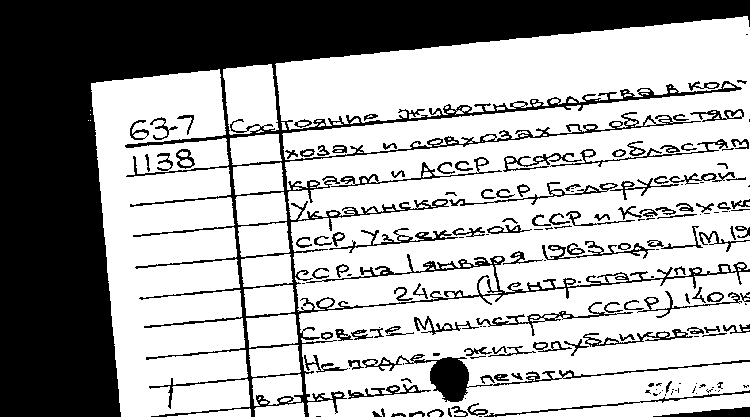 63-7 Состояние животноводства в кол-
1138 хозах и совхозах по областям,
краям и АССР РСФСР, областям
Украинской ССР, Белорусской
ССР, Узбекской ССР и Казахско
ССР на 1 января 1963 года. [М., 19
30с. 24см (Центр. стат. упр. пр
Совете Министров СССР) 140 эк
Не подле- жит опубликованию
в открытой печати.